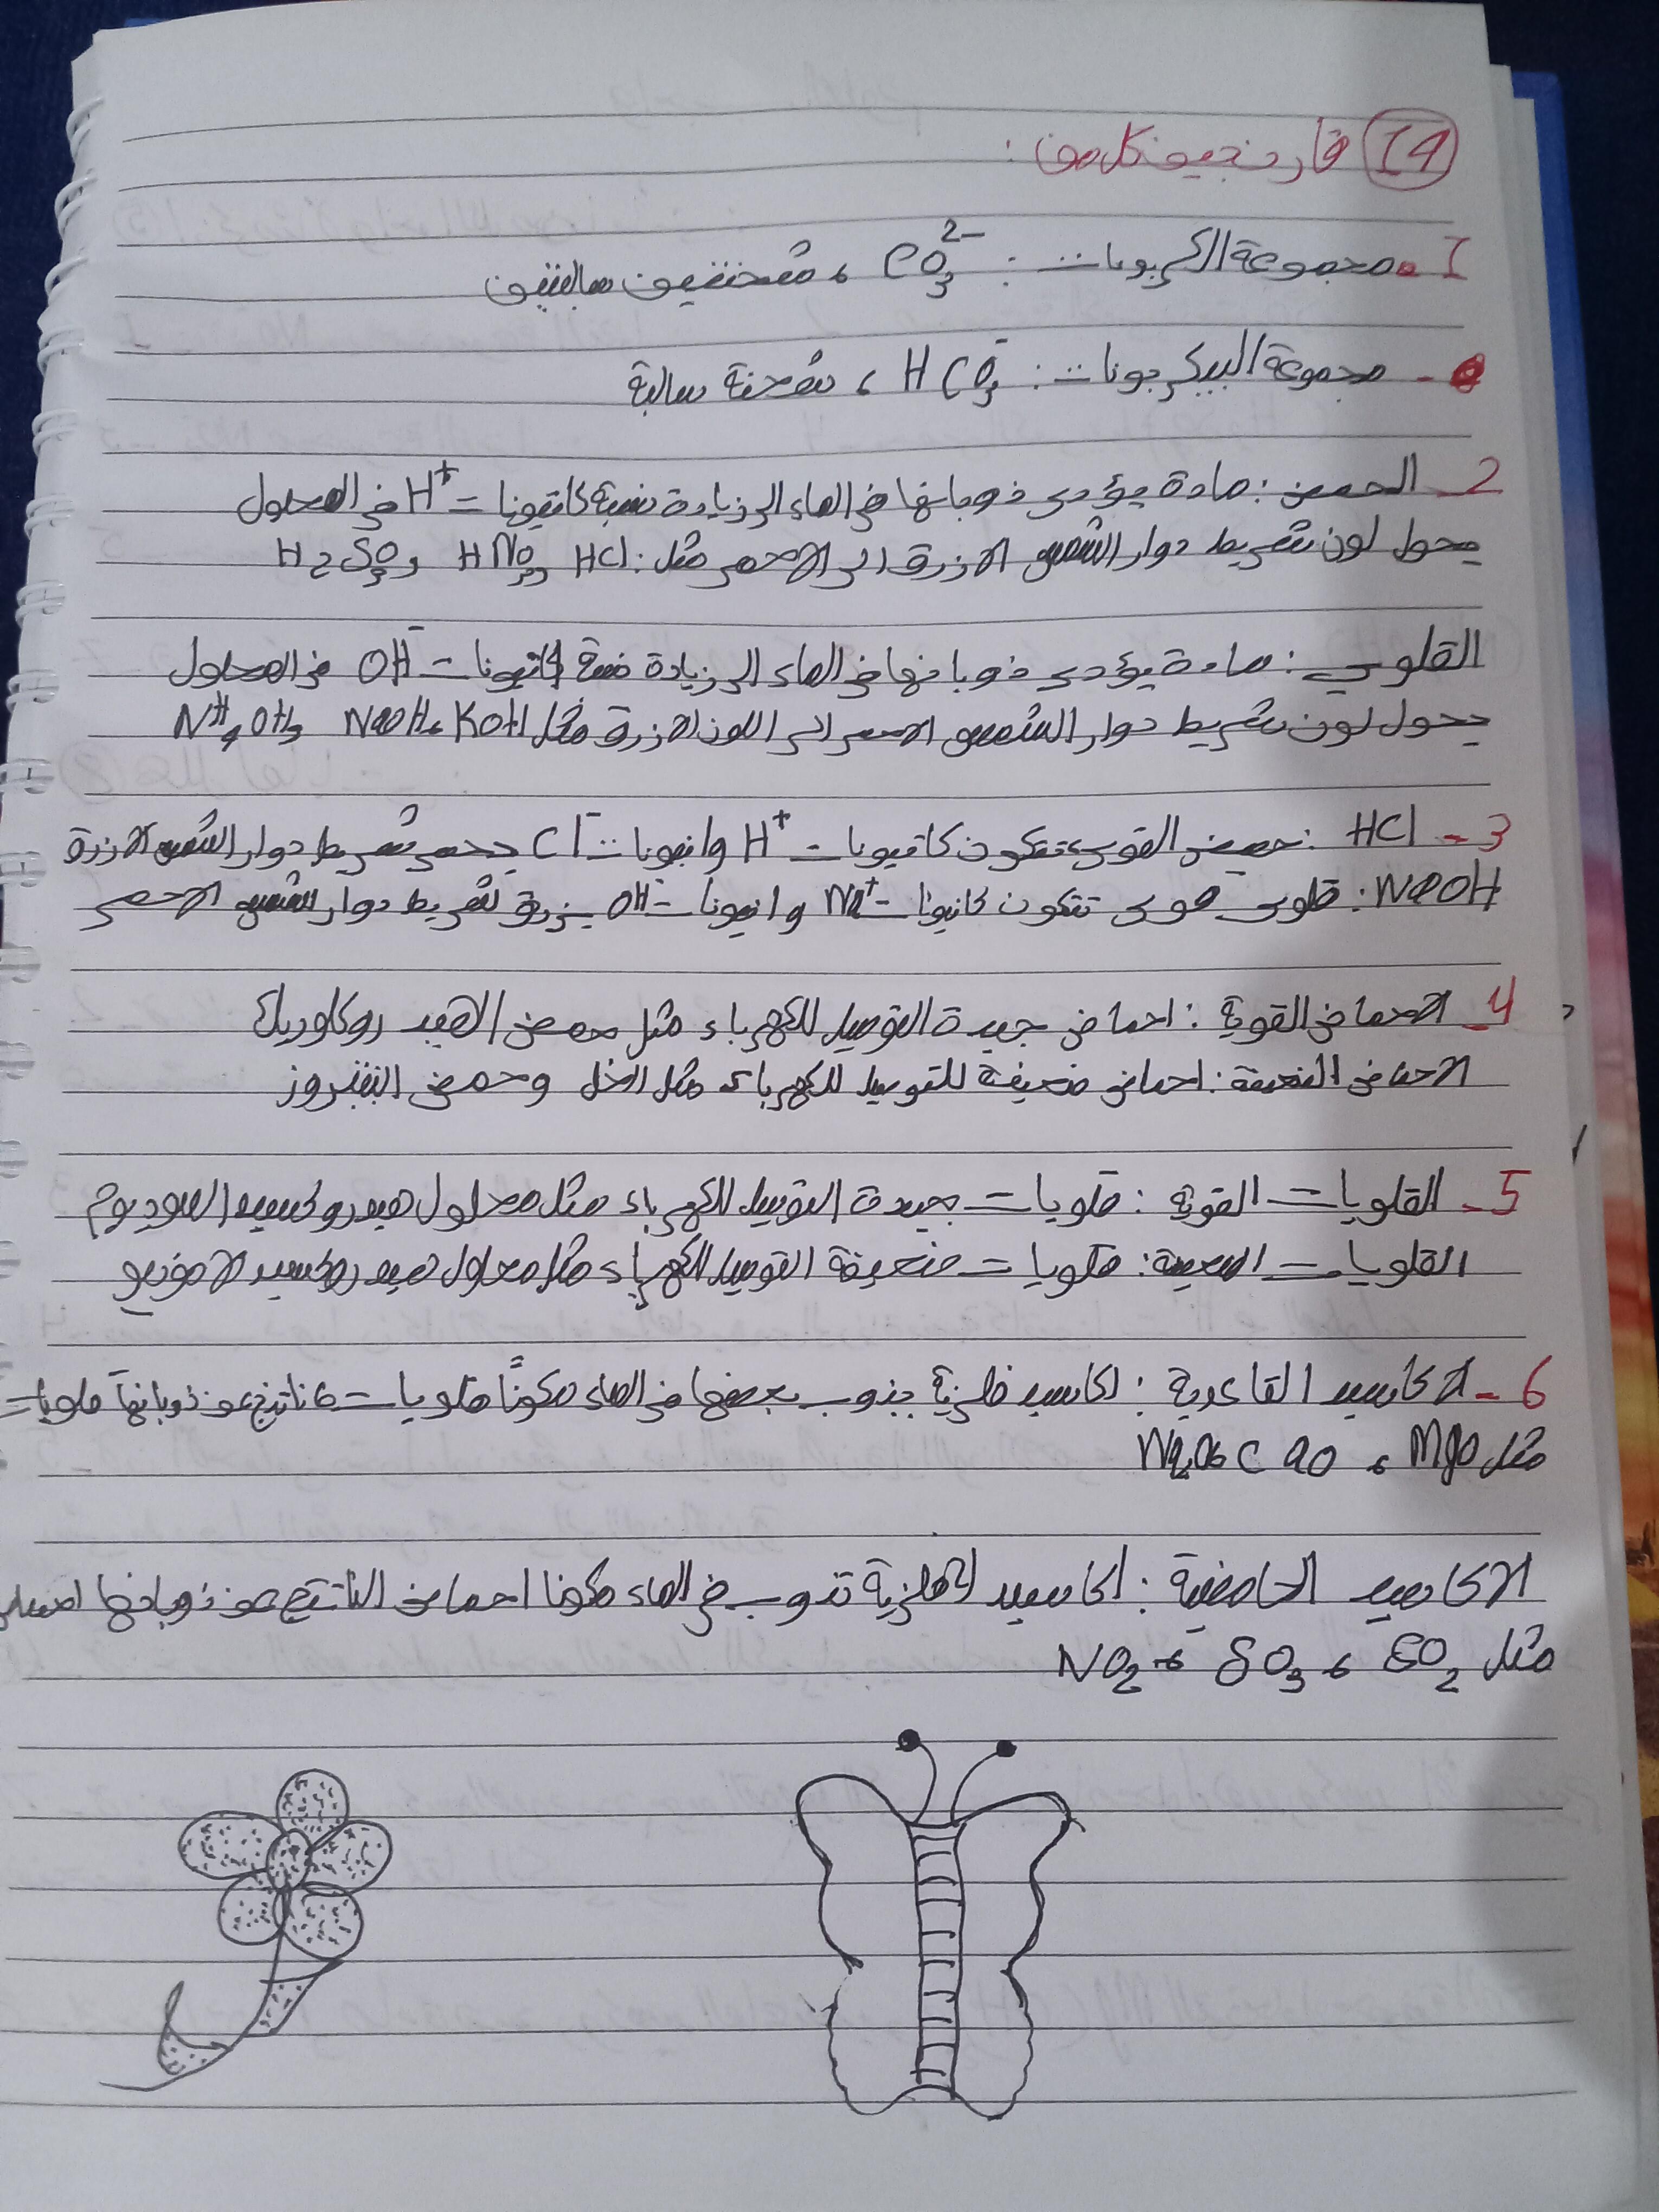 14 قارن بين كل من :
1- مجموعة الكربونات : CO3 2- ، شحنتين سالبتين
- مجموعة البيكربونات : HCO3- ، شحنة سالبة
2- الحمض : مادة يؤدى ذوبانها فى الماء الى زيادة نسبة كاتيونات H+ فى المحلول
يحول لون شريط دوار الشمس الازرق الى الاحمر مثل : HCl و HNO3 و H2SO3
القلوي : مادة يؤدى ذوبانها فى الماء الى زيادة نسبة OH- فى المحلول
يحول لون شريط دوار الشمس الاحمر الى اللون الازرق مثل KOH ، NaOH و NH4OH
3- HCl : حمض القوى تتكون كاتيونات H+ وانيونات Cl- يحمر شريط دوار الشمس الازرق
NaOH : قلوى قوى تتكون كاتيونات Na+ وانيونات OH- يزرق شريط دوار الشمس الاحمر
4- الاحماض القوية : احماض جيدة التوصيل للكهرباء مثل حمض الهيدروكلوريك
الاحماض الضعيفة : احماض ضعيفة للتوصيل للكهرباء مثل الخل وحمض النيتروز
5- القلويات القوية : قلويات جيدة التوصيل للكهرباء مثل محلول هيدروكسيد الصوديوم
القلويات الضعيفة : قلويات ضعيفة التوصيل للكهرباء مثل محلول هيدروكسيد الامونيو
6- الاكاسيد القاعدية : اكاسيد فلزية يذوب بعضها فى الماء مكوناً قلويات ناتج عن ذوبانها قلويات
مثل MgO ، CaO ، Na2O
الاكاسيد الحامضية : اكاسيد لافلزية تذوب فى الماء مكونا احماض الناتج عن ذوبانها
مثل CO2 ، SO3 ، NO2